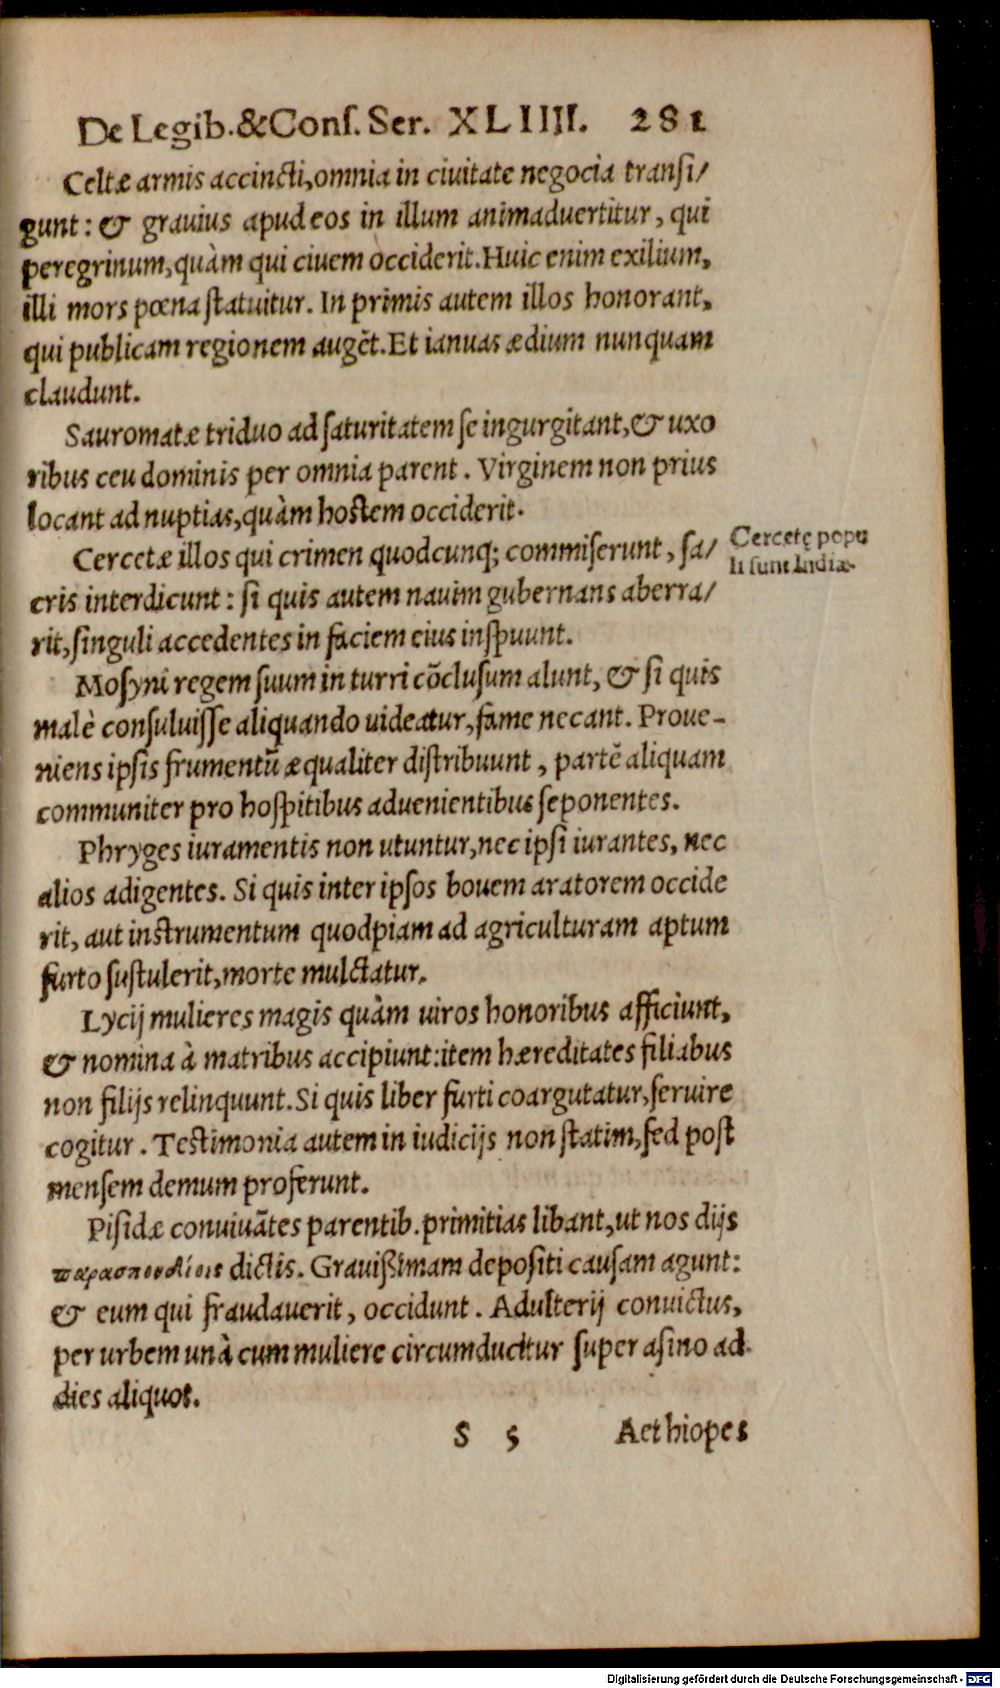 De Legib. & Conſ. Ser. XLIIII. 281
Celtæ armis accincti, omnia in ciuitate negocia tranſi/
gunt: & grauius apud eos in illum animaduertitur, qui
peregrinum, quàm qui ciuem occiderit. Huic enim exilium,
illi mors pœna ſtatuitur. In primis autem illos honorant,
qui publicam regionem augẽt. Et ianuas ædium nunquam
claudunt.
Sauromatæ triduo ad ſaturitatem ſe ingurgitant, & uxo
ribus ceu dominis per omnia parent. Virginem non prius
locant ad nuptias, quàm hoſtem occiderit.
Cercetæ illos qui crimen quodcunq; commiſerunt, ſa/
cris interdicunt: ſi quis autem nauim gubernans aberra/
rit, ſinguli accedentes in faciem eius inſpuunt.
Cercetę popu
li ſunt Indiæ.
Moſyni regem ſuum in turri cõcluſum alunt, & ſi quis
malè conſuluiſſe aliquando uideatur, fame necant. Proue-
niens ipſis frumentũ æqualiter diſtribuunt, partẽ aliquam
communiter pro hoſpitibus aduenientibus ſeponentes.
Phryges iuramentis non utuntur, nec ipſi iurantes, nec
alios adigentes. Si quis inter ipſos bouem aratorem occide
rit, aut inſtrumentum quodpiam ad agriculturam aptum
furto ſuſtulerit, morte mulctatur.
Lycij mulieres magis quàm uiros honoribus afficiunt,
& nomina à matribus accipiunt: item hæreditates filiabus
non filijs relinquunt. Si quis liber furti coargutatur, ſeruire
cogitur. Teſtimonia autem in iudicijs non ſtatim, ſed poſt
menſem demum proferunt.
Piſidæ conuiuãtes parentib. primitias libant, ut nos dijs
παρασπονδίοις dictis. Grauiſsimam depoſiti cauſam agunt:
& eum qui fraudauerit, occidunt. Adulterij conuictus,
per urbem unà cum muliere circumducitur ſuper aſino ad
dies aliquot.
S 5 Aethiopes
Digitalisierung gefördert durch die Deutsche Forschungsgemeinschaft - DFG